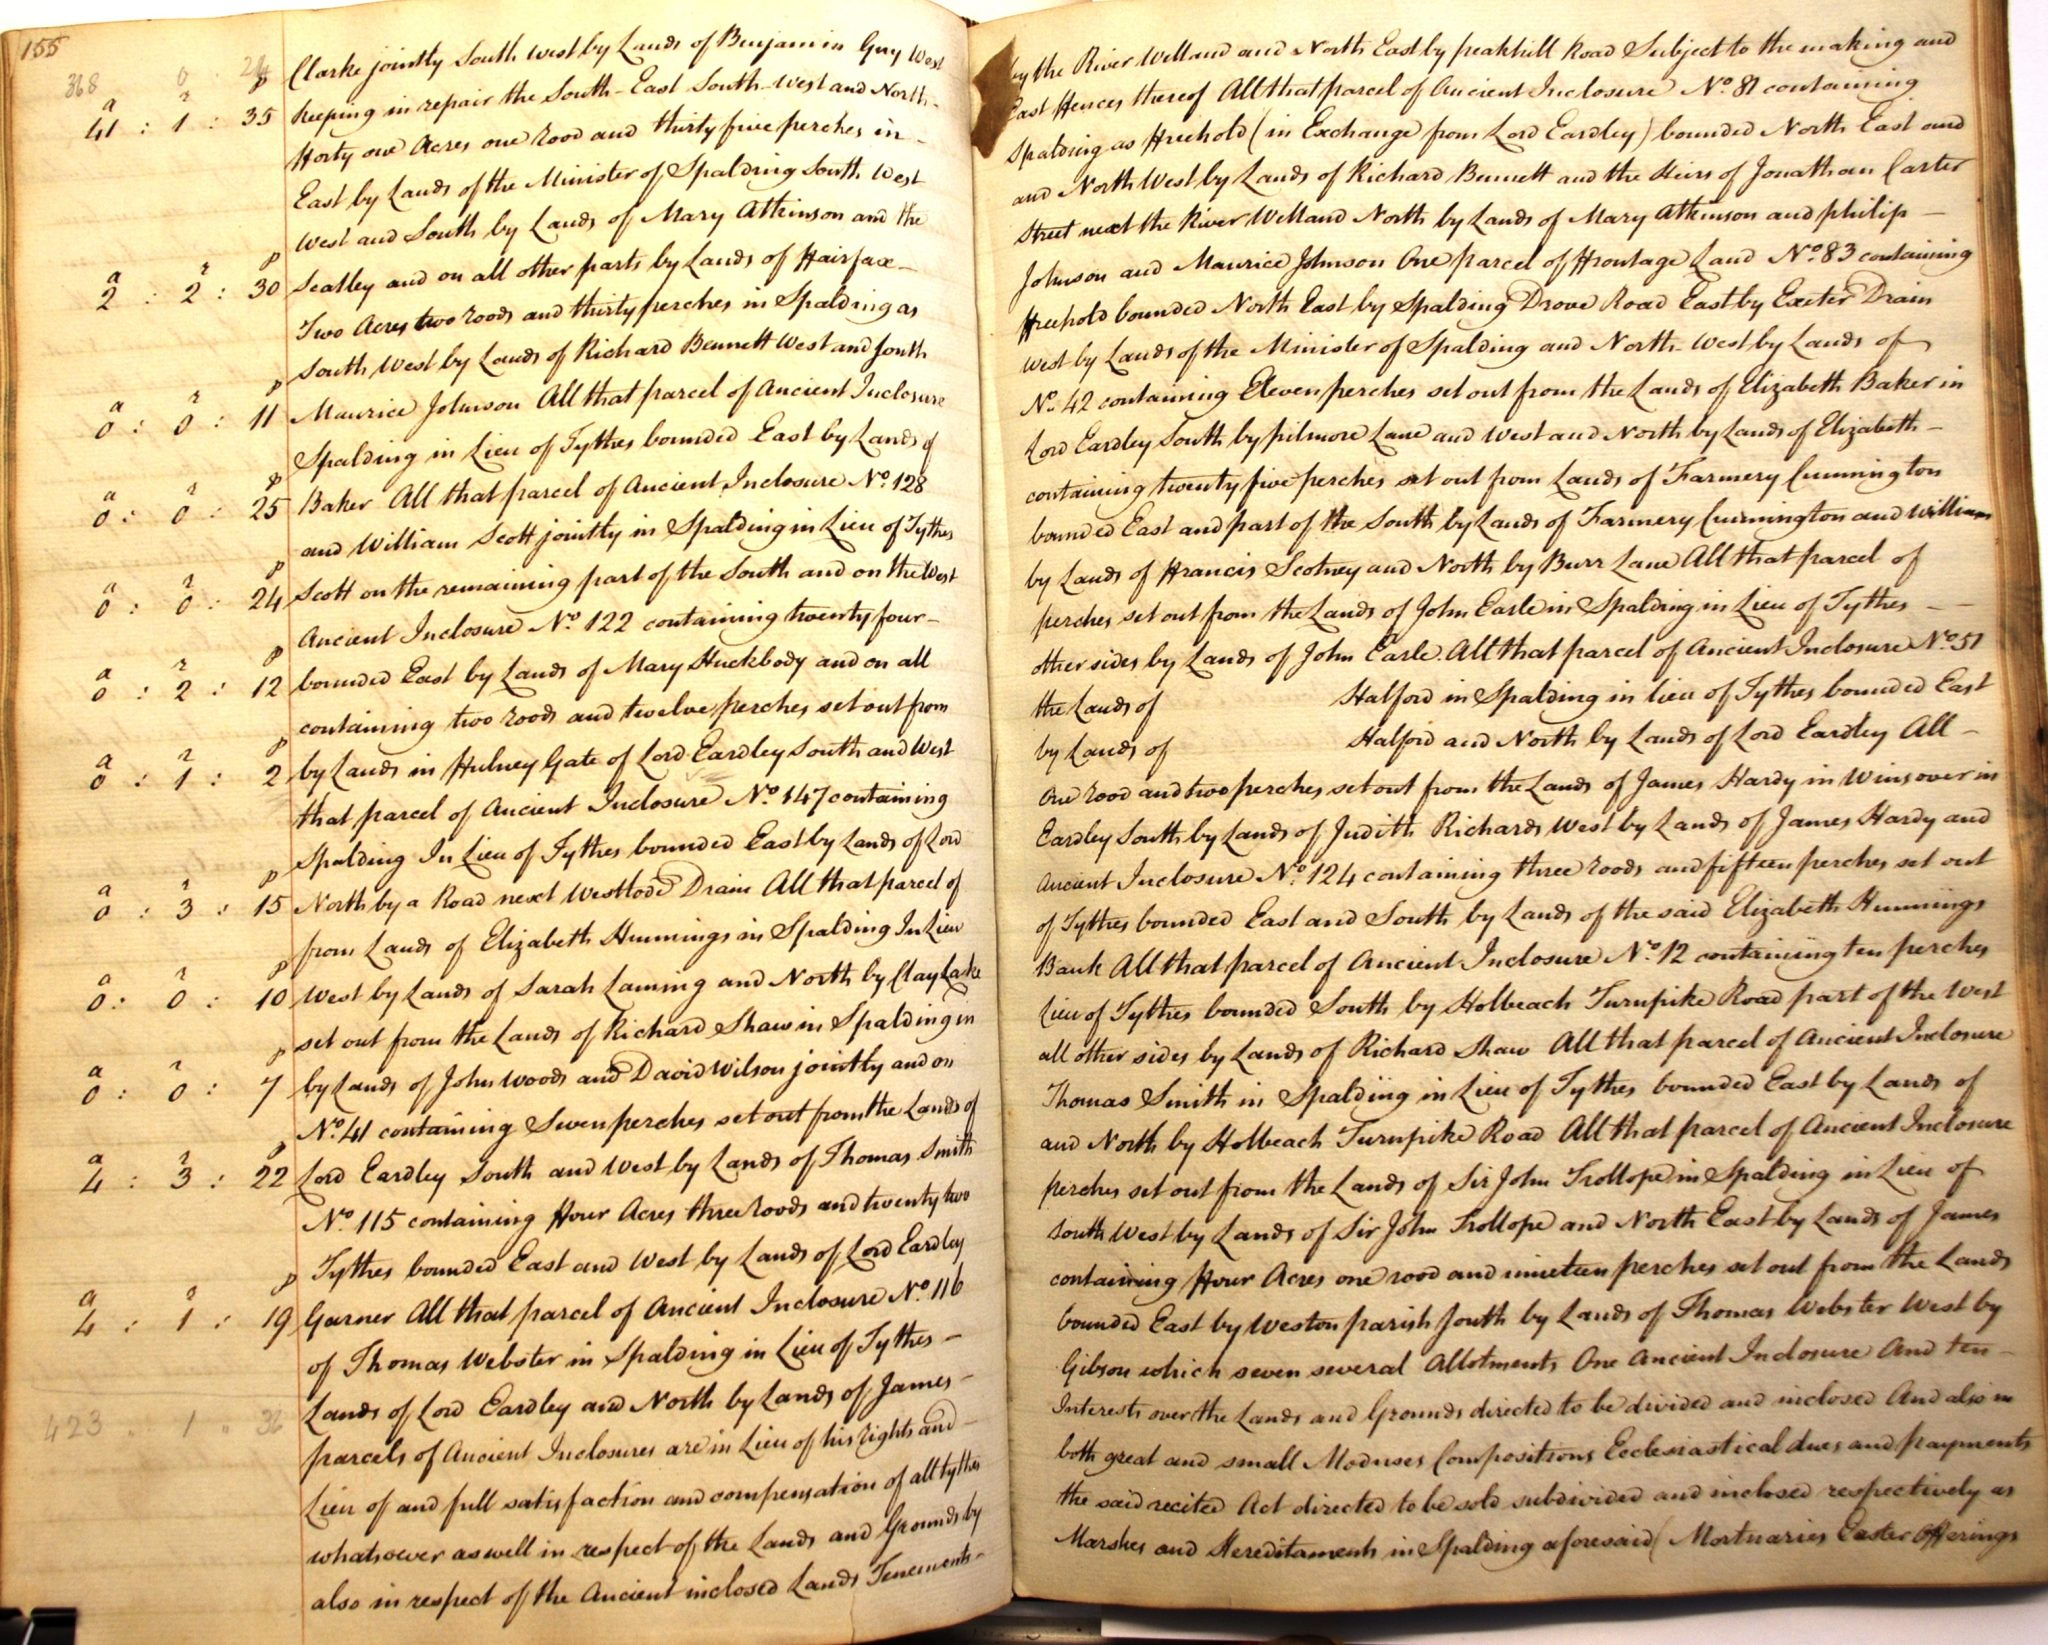 155
368 0 24
a r p
Clarke jointly South West by Lands of Benjamin Guy West by the River Welland and North East by peakhill Road Subject to the making and
41 : 1 : 35 keeping in repair the South-East South-West and North- East Fences thereof All that parcel of Ancient Inclosure No. 81 containing
Forty one Acres one rood and thirty five perches in - Spalding as Freehold (in Exchange from Lord Eardley) bounded North East and
East by Lands of the Minister of Spalding South West and North West by Lands of Richard Bennett and the Heirs of Jonathan Carter
West and South by Lands of Mary Atkinson and the Street next the River Welland North by Lands of Mary Atkinson and philip -
a r p
2 : 2 : 30 Seatley and on all other parts by Lands of Fairfax - Johnson and Maurice Johnson One parcel of Frontage Land No. 83 containing
Two Acres two roods and thirty perches in Spalding as Freehold bounded North East by Spalding Drove Road East by Exeter Drain
South West by Lands of Richard Bennett West and South West by Lands of the Minister of Spalding and North-West by Lands of
a r p
0 : 0 : 11 Maurice Johnson All that parcel of Ancient Inclosure No. 42 containing Eleven perches set out from the Lands of Elizabeth Baker in
Spalding in Lieu of Tythes bounded East by Lands of Lord Eardley South by pilmore Lane and West and North by Lands of Elizabeth -
a r p
0 : 0 : 25 Baker All that parcel of Ancient Inclosure No. 128 containing twenty five perches set out from Lands of Farmery Cunnington
and William Scott jointly in Spalding in Lieu of Tythes bounded East and part of the South by Lands of Farmery Cunnington and William
a r p
0 : 0 : 24 Scott on the remaining part of the South and on the West by Lands of Francis Scotney and North by Burr Lane All that parcel of
Ancient Inclosure No. 122 containing twenty four - perches set out from the Lands of John Earle in Spalding in Lieu of Tythes - -
a r p
0 : 2 : 12 bounded East by Lands of Mary Huckbody and on all other sides by Lands of John Earle. All that parcel of Ancient Inclosure No. 51
containing two roods and twelve perches set out from the Lands of Halford in Spalding in lieu of Tythes bounded East
a r p
0 : 1 : 2 by Lands in Hulney Gate of Lord Eardley South and West by Lands of Halford and North by Lands of Lord Eardley All -
that parcel of Ancient Inclosure No. 147 containing One rood and two perches set out from the Lands of James Hardy in Winsover in
Spalding In Lieu of Tythes bounded East by Lands of Lord Eardley South by Lands of Judith Richards West by Lands of James Hardy and
a r p
0 : 3 : 15 North by a Road next Westlode Drain All that parcel of Ancient Inclosure No. 124 containing three roods and fifteen perches set out
from Lands of Elizabeth Hunnings in Spalding In Lieu of Tythes bounded East and South by Lands of the said Elizabeth Hunnings
a r p
0 : 0 : 10 West by Lands of Sarah Laming and North by Clay Lake Bank All that parcel of Ancient Inclosure No. 12 containing ten perches
set out from the Lands of Richard Shaw in Spalding in Lieu of Tythes bounded South by Holbeach Turnpike Road part of the West
a r p
0 : 0 : 7 by Lands of John Woods and David Wilson jointly and on all other sides by Lands of Richard Shaw All that parcel of Ancient Inclosure
No. 41 containing Seven perches set out from the Lands of Thomas Smith in Spalding in Lieu of Tythes bounded East by Lands of
a r p
4 : 3 : 22 Lord Eardley South and West by Lands of Thomas Smith and North by Holbeach Turnpike Road All that parcel of Ancient Inclosure
No. 115 containing Four Acres three roods and twenty two perches set out from the Lands of Sir John Trollope in Spalding in Lieu of
Tythes bounded East and West by Lands of Lord Eardley South West by Lands of Sir John Trollope and North East by Lands of James
a r p
4 : 1 : 19 Garner All that parcel of Ancient Inclosure No. 116 containing Four Acres one rood and nineteen perches set out from the Lands
of Thomas Webster in Spalding in Lieu of Tythes - bounded East by Weston parish South by Lands of Thomas Webster West by
Lands of Lord Eardley and North by Lands of James - Gibson which seven several Allotments One Ancient Inclosure And ten -
423 " 1 " 32 parcels of Ancient Inclosures are in Lieu of his rights and - Interests over the Lands and Grounds directed to be divided and inclosed And also in
Lieu of and full satisfaction and compensation of all tythes both great and small Moduses Compositions Ecclesiastical dues and payments
whatsoever as well in respect of the Lands and Grounds by the said recited Act directed to be sold subdivided and inclosed respectively as
also in respect of the Ancient inclosed Lands Tenements - Marshes and Hereditaments in Spalding aforesaid (Mortuaries Easter Offerings